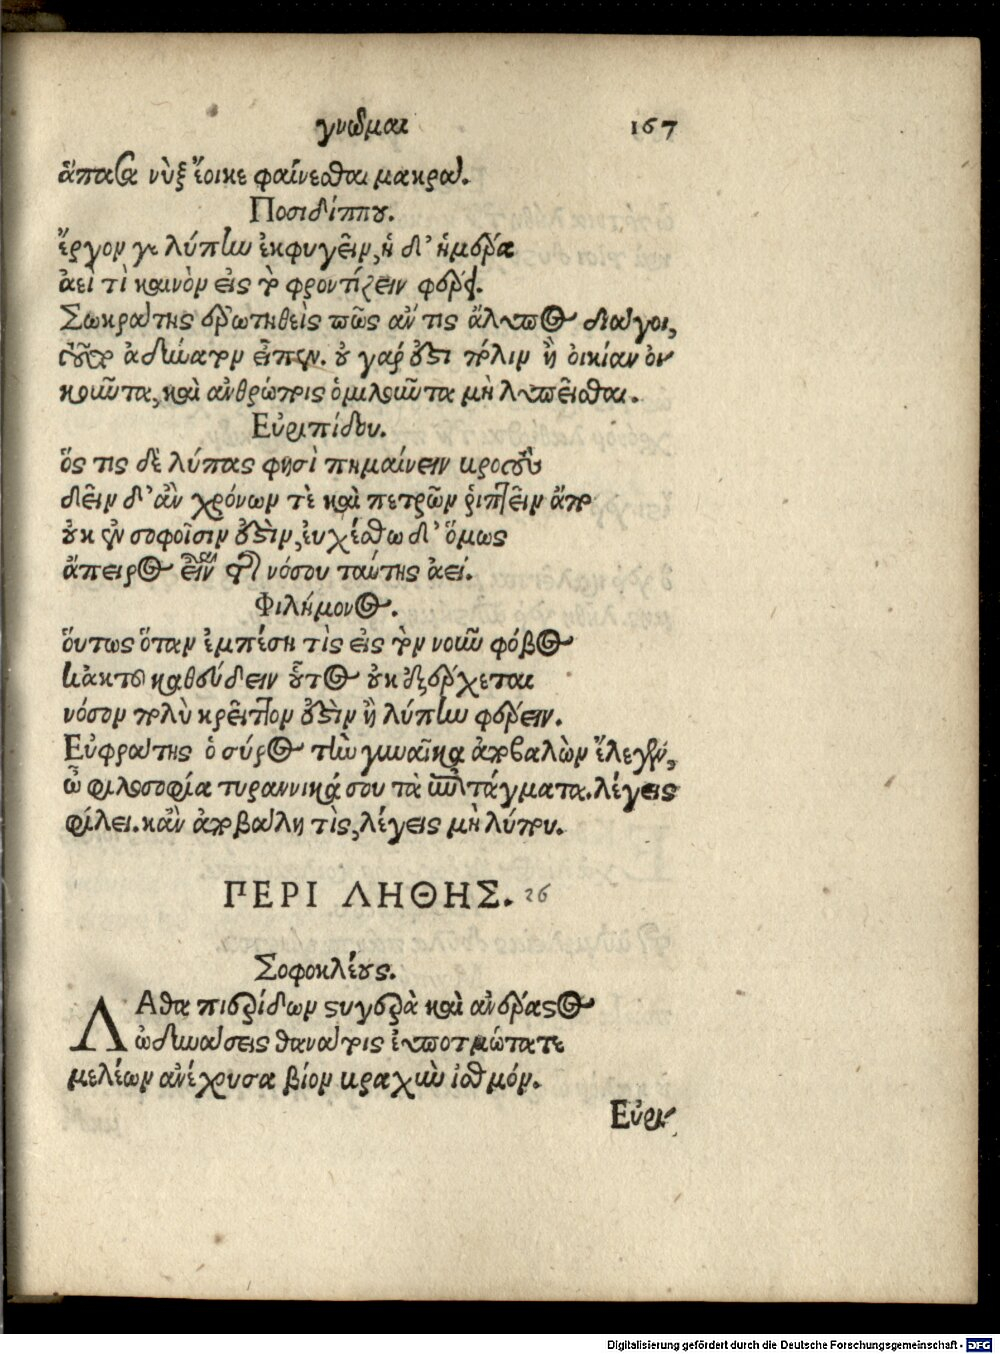 γνῶμαι 167
ἅπασα νὺξ ἔοικε φαίνεσθαι μακρά.
Ποσιδίππου.
ἔργον γε λύπην ἐκφυγεῖν, ἡ δ' ἡμέρα
ἀεὶ τὶ καινὸν εἰς τὸ φροντίζειν φέρει.
Σωκράτης ἐρωτηθεὶς πῶς ἄν τις ἄλυπος διάγοι,
τοῦτο ἀδύνατον εἶπεν. οὐ γάρ ἔστι πόλιν ἢ οἰκίαν οἰ
κοῦντα, καὶ ἀνθρώποις ὁμιλοῦντα μὴ λυπεῖσθαι.
Εὐριπίδου.
ὅς τις δὲ λύπας φησὶ πημαίνειν βροτοὺς
δεῖν δ' ἂν χρόνων τὲ καὶ πετρῶν ῥιπτεῖν ἄπο
οὐκ ἐν σοφοῖσιν ἔστιν, εὐχέσθω δ' ὅμως
ἄπειρος εἶναι τῆς νόσου ταύτης ἀεί.
Φιλήμονος.
ὅυτως ὅταν ἐμπέσῃ τὶς εἰς τὸν νοῦν φόβος
κἀκτοῦ καθεύδειν οὗτος οὐκ ἐξέρχεται
νόσον πολὺ κρεῖττον ἔστιν ἢ λύπην φέρειν.
Εὐφράτης ὁ σύρος τὴν γυναῖκα ἀποβαλὼν ἔλεγεν,
ὦ φιλοσοφία τυραννικά σου τὰ ἐπιτάγματα. λέγεις
φίλει. κἂν ἀποβάλῃ τὶς, λέγεις μὴ λύπου.
ΠΕΡΙ ΛΗΘΗΣ. 26
Σοφοκλέους.
ΛΑθα πιερίδων στυγερὰ καὶ ἀνέραστος
ὠ δύνασεις θνατοῖς εὐποτμώτατε
μελέων ἀνέχουσα βίου βραχὺν ἰσθμόν.
Εὐρι